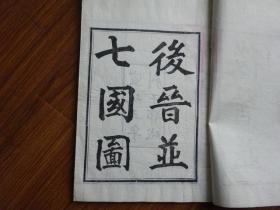 後晉並
七國圖